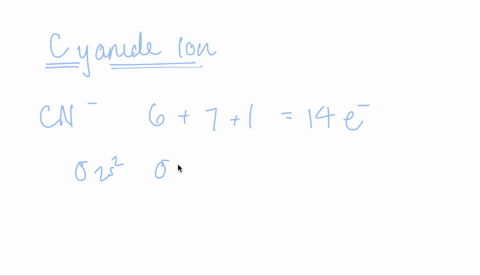 Cyanide Ion
CN⁻ 6 + 7 + 1 = 14 e⁻
σ 2s² σ